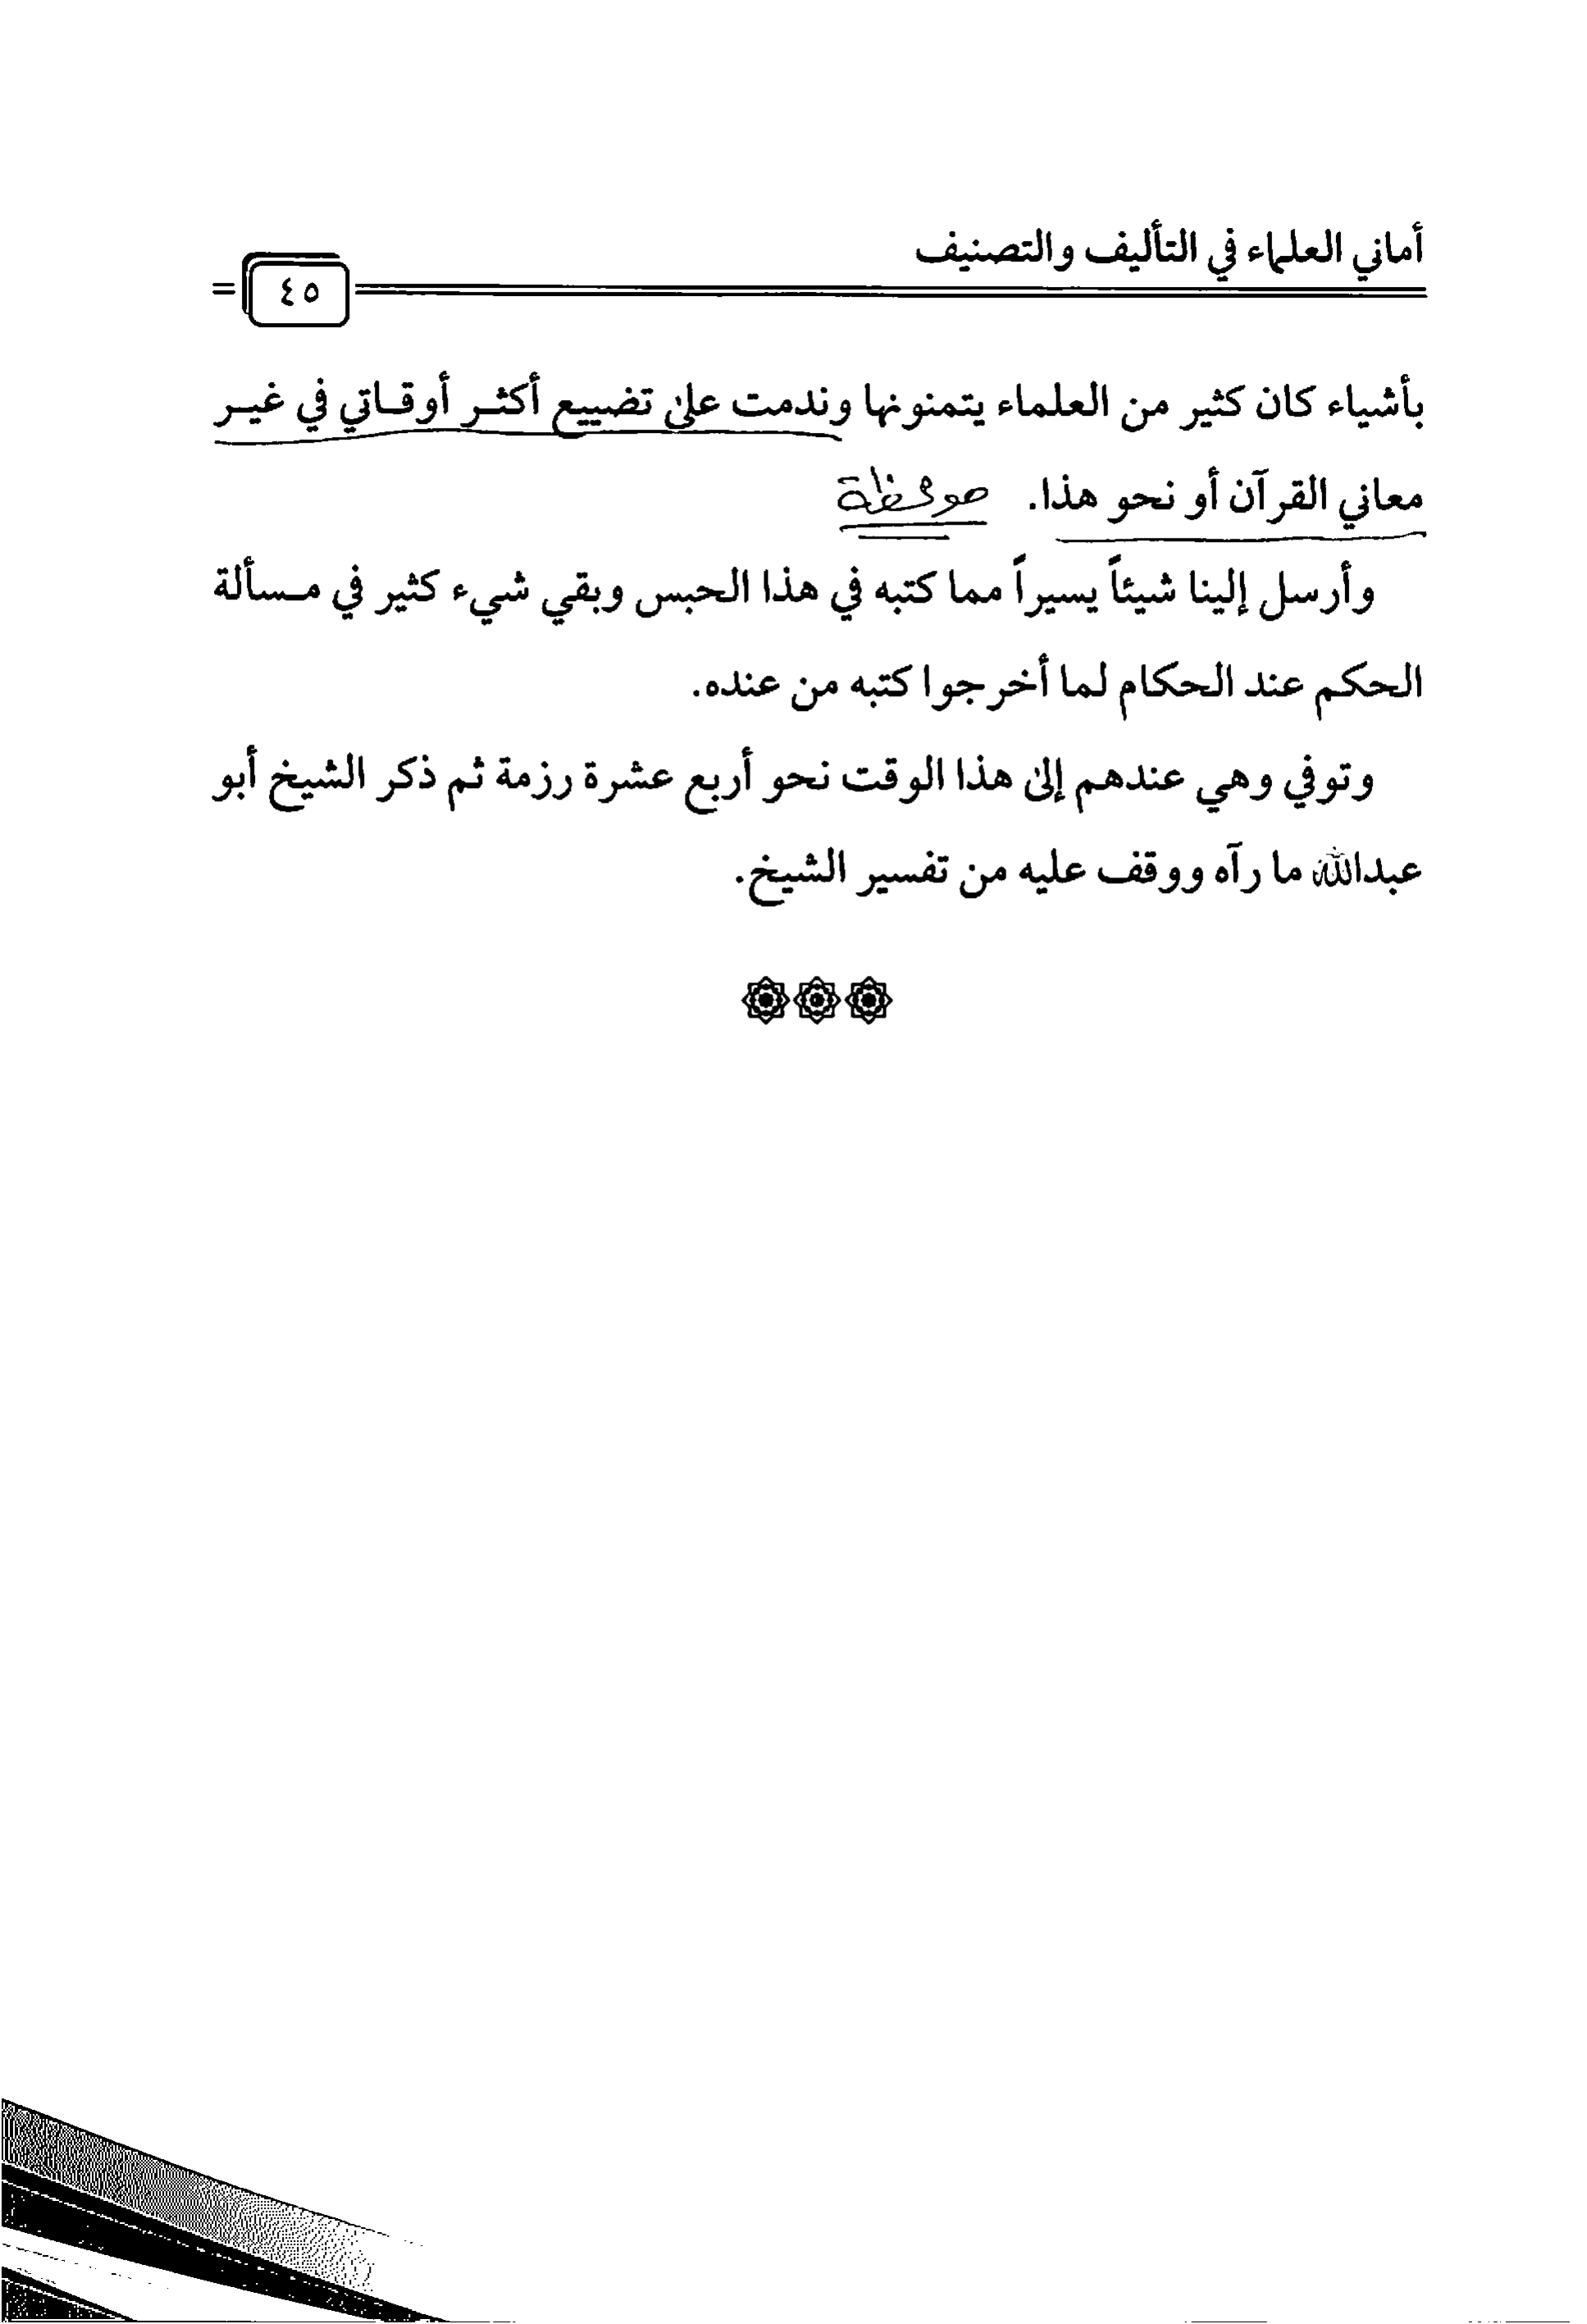 أماني العلماء في التأليف والتصنيف
٤٥
بأشياء كان كثير من العلماء يتمنونها وندمت على تضييع أكثـر أوقـاتي في غيـر
معاني القرآن أو نحو هذا.
وأرسل إلينا شيئاً يسيراً مما كتبه في هذا الحبس وبقي شيء كثير في مـسألة
الحكم عند الحكام لما أخرجوا كتبه من عنده.
وتوفي وهي عندهم إلى هذا الوقت نحو أربع عشرة رزمة ثم ذكر الشيخ أبو
عبدالله ما رآه ووقف عليه من تفسير الشيخ.